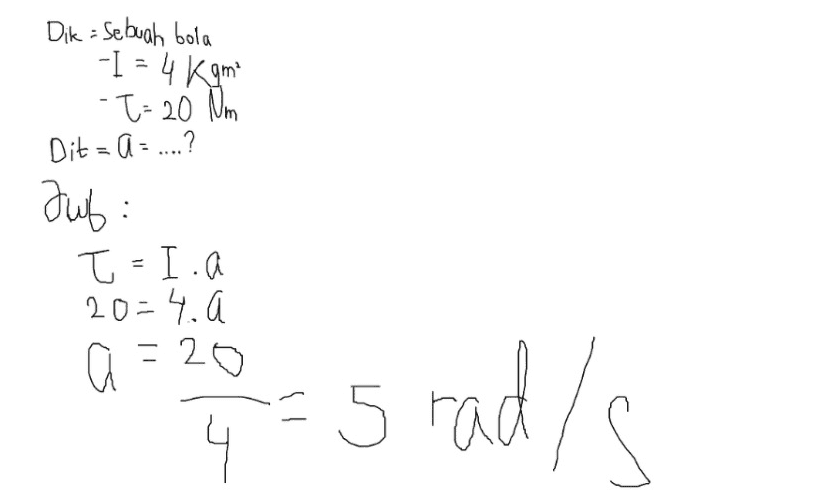 Dik = Sebuah bola
- I = 4 Kgm²
- τ = 20 Nm
Dit = a = ....?
Jwb :
τ = I . a
20 = 4 . a
a = 20
4 = 5 rad/s